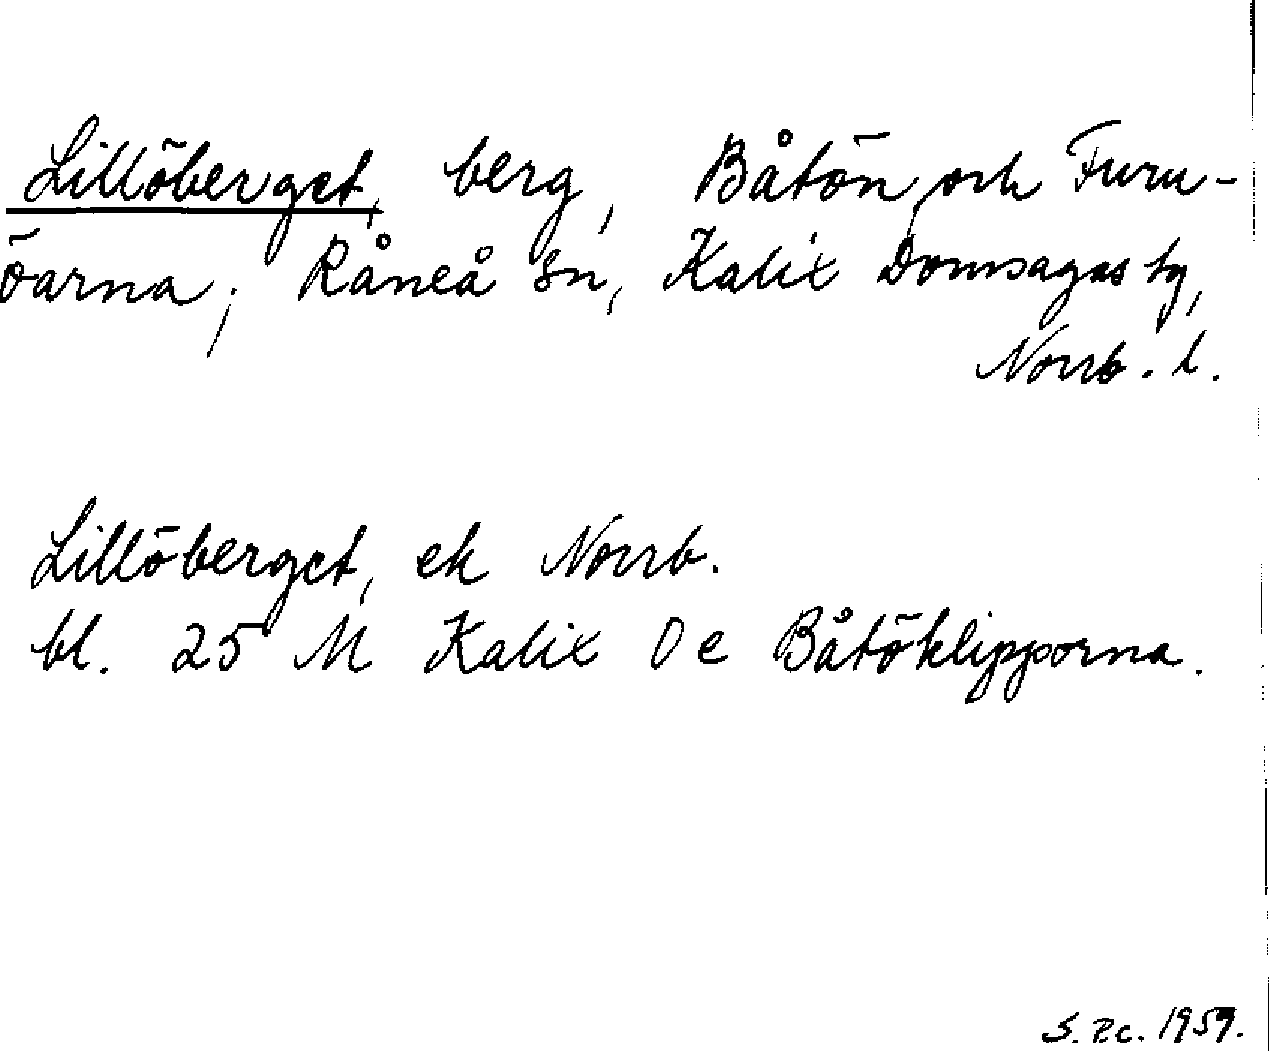 Lillöberget, berg, Båtön och Furu-
öarna, Råneå sn, Kalix Domsagas tg,
Norrb. l.
Lillöberget, ek Norrb.
bl. 25 M Kalix 0 e Båtöklipporna.
S. Rc. 1959.